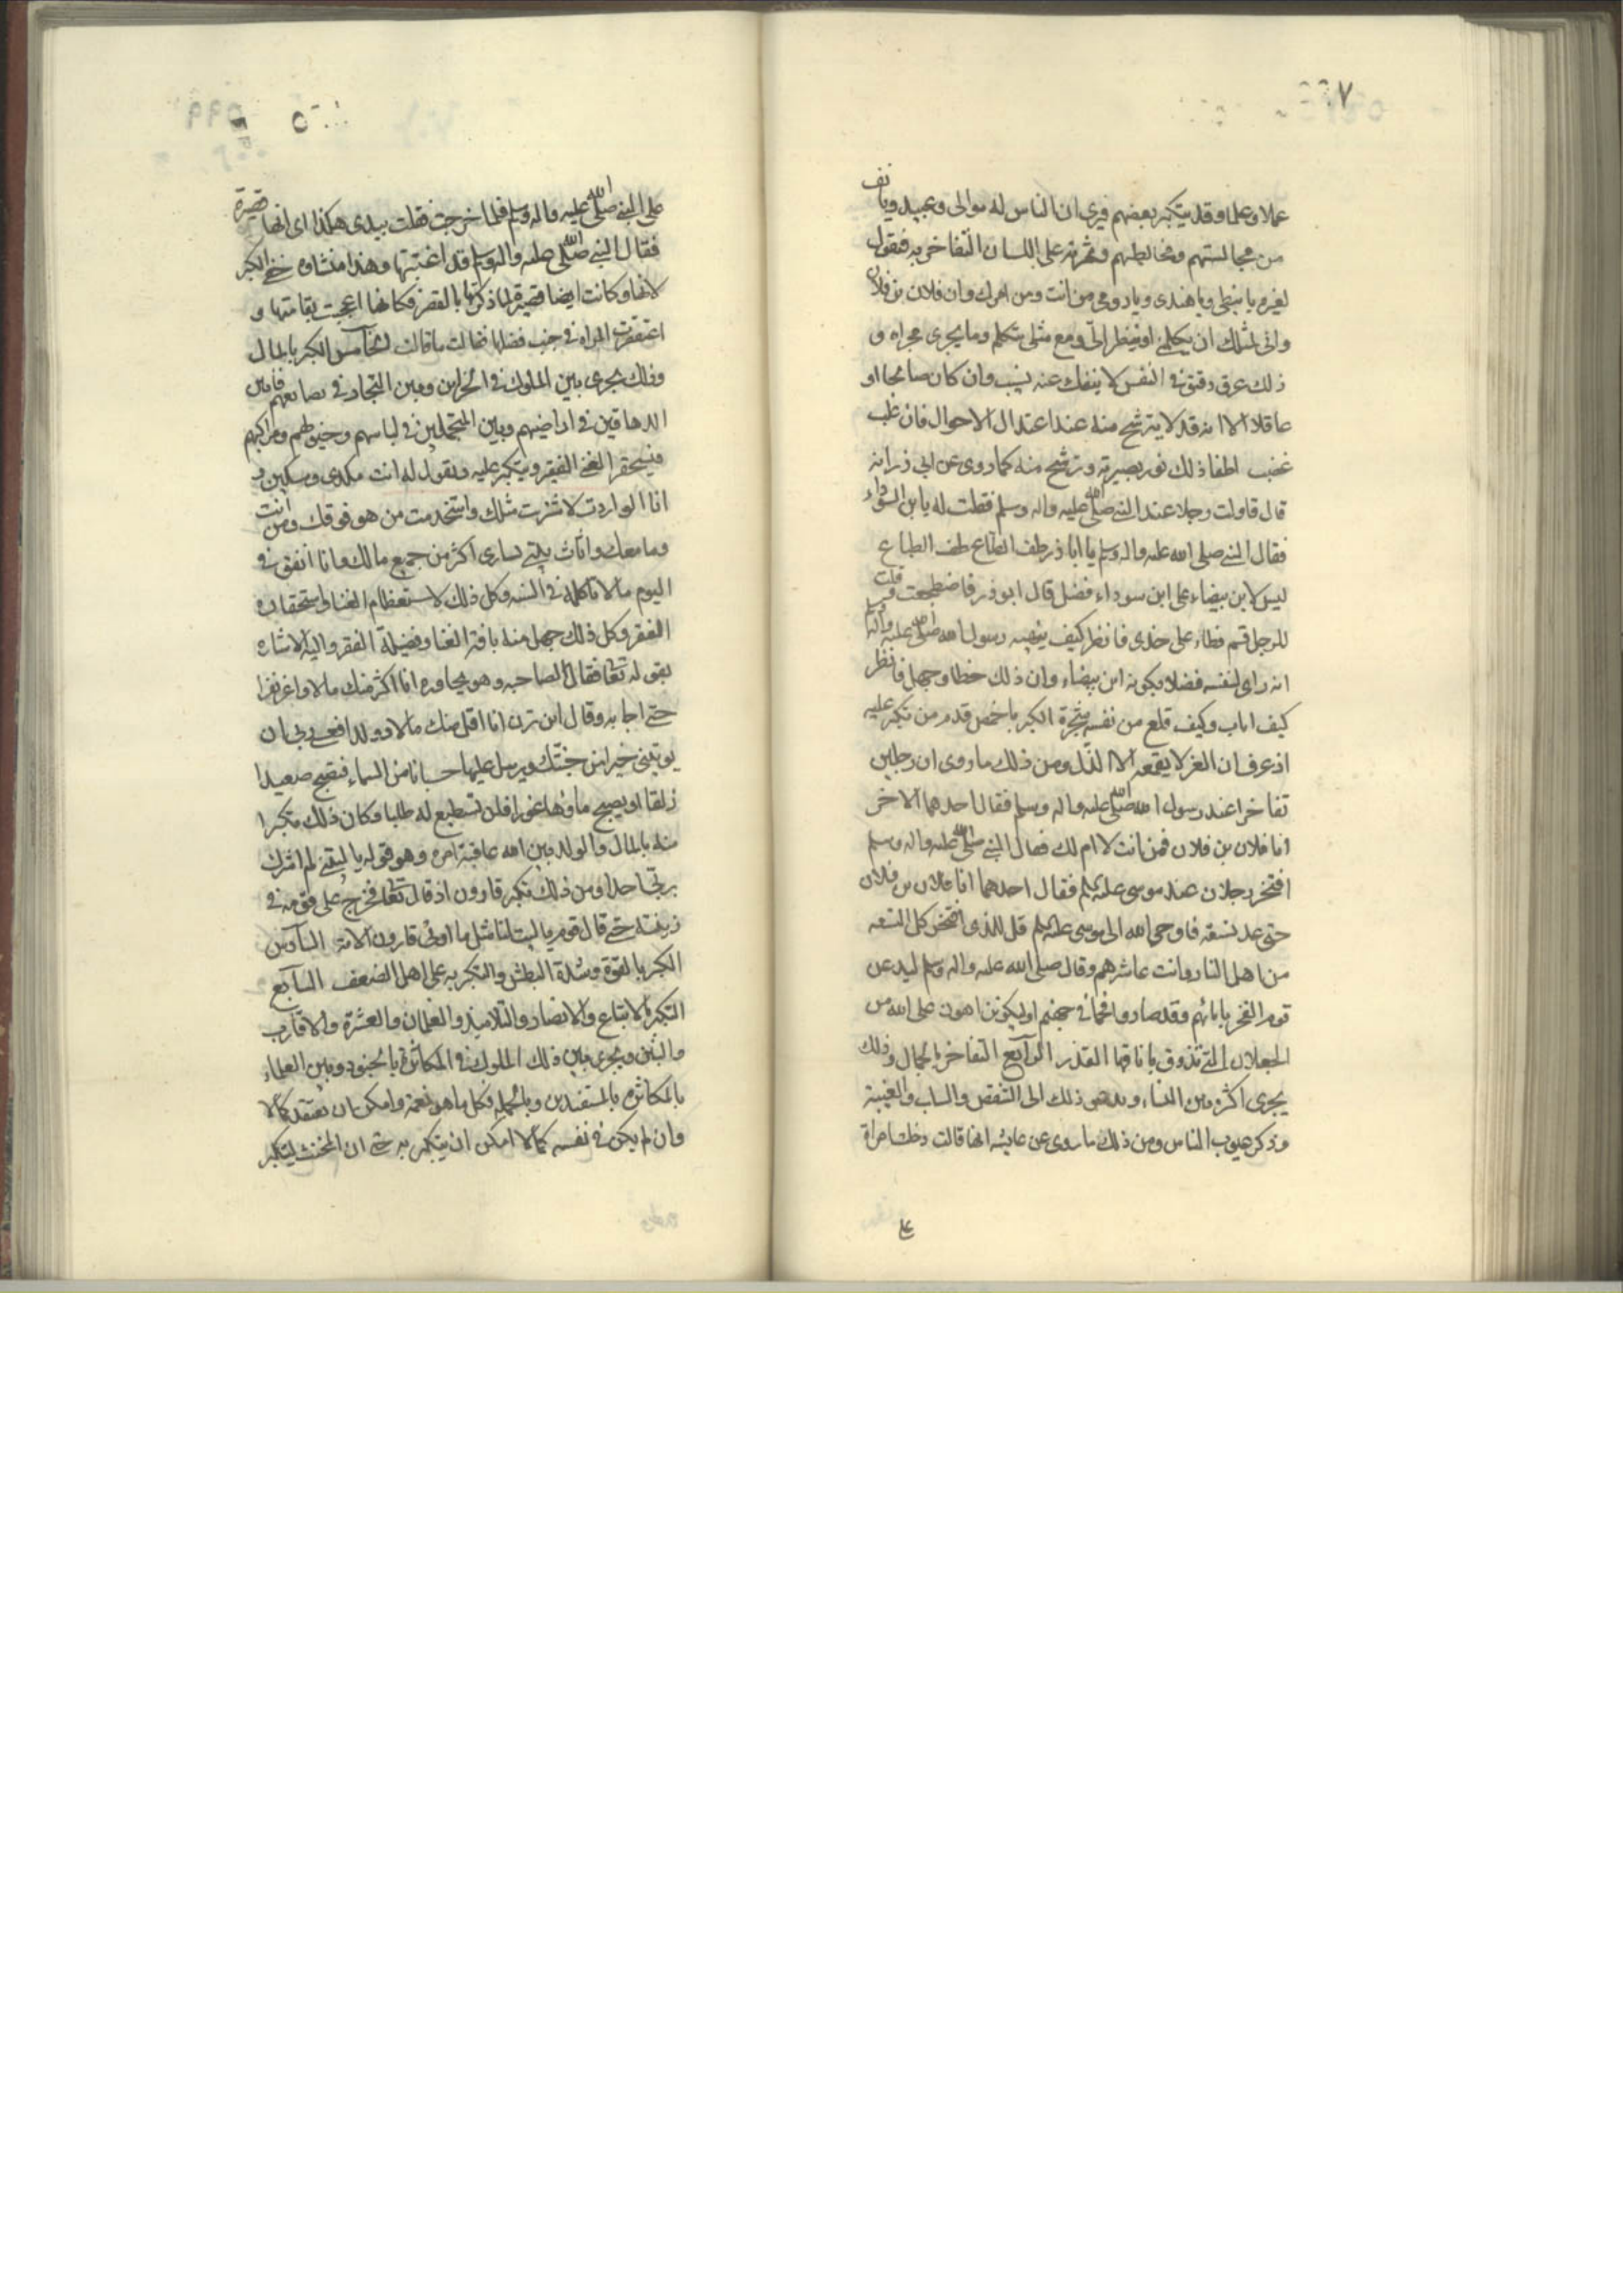 عملا وعلما وقد يتكبر بعضهم فيرى ان الناس له موالى وعبيد ويانف
من مجالستهم ومخالطتهم وثمرته على اللسان التفاخر به فيقول
لغيره يا نبطى ويا هندى ويا رومى من انت ومن ابوك وان فلان بن فلان
وانى لمثلك ان يكلمنى او ينظر الىّ ومع مثلى يتكلم وما يجرى مجراه و
ذلك عرق دقيق فى النفس لا ينفك عنه نسيب وان كان صالحا او
عاقلا الا انه قد لا يترشح منه عند اعتدال الاحوال فان غلب
غضب اطفا ذلك نور بصيرته وترشح منه كما روى عن ابى ذر انه
قال قاولت رجلا عند النبى صلى الله عليه واله وسلم فقلت له يا بن السوداء
فقال النبى صلى الله عليه واله وسلم يا ابا ذر طف الصاع طف الصاع
ليس لابن بيضاء على ابن سوداء فضل قال ابو ذر فاضطجعت وقلت
للرجل قم فطاء على خدى فانظر كيف ينبهه رسول الله صلى الله عليه واله وسلم
انه راى لنفسه فضلا بكونه ابن بيضاء وان ذلك خطا وجهل فانظر
كيف اناب وكيف قلع من نفسه شجرة الكبر باخمص قدم من تكبر عليه
اذ عرف ان العز لا يقمعه الا الذّل ومن ذلك ما روى ان رجلين
تفاخرا عند رسول الله صلى الله عليه واله وسلم فقال احدهما الاخر
انا فلان بن فلان فمن انت لا ام لك فقال النبى صلى الله عليه واله وسلم
افتخر رجلان عند موسى عليه السلم فقال احدهما انا فلان بن فلان
حتى عد تسعه فاوحى الله الى موسى عليه السلم قل للذى افتخر كل التسعه
من اهل النار وانت عاشرهم وقال صلى الله عليه واله وسلم ليدعن
قوم الفخر بابائهم وقد صاروا فحما فى جهنم او ليكونن اهون على الله من
الجعلان التى تذوق بانافها القذر الرابع التفاخر بالجمال وذلك
يجرى اكثره بين النساء ويدعى ذلك الى التنقص والساب والغيبة
وذكر عيوب الناس ومن ذلك ما روى عن عايشه انها قالت دخلت امراة
على النبى صلى الله عليه واله وسلم فلما خرجت فقلت بيدى هكذا اى انها قصيرة
فقال النبى صلى الله عليه واله وسلم قد اغتبتها وهذا منشاوه خفى الكبر
لانها وكانت ايضا قصيرة لما ذكرتها بالقصر فكانها اعجبت بقامتها و
المراه فى جنب نفسها فقالت ما قالت الخامس الكبر بالمال
وذلك يجرى بين الملوك فى الخزاين وبين التجار فى بضايعهم وبين
الدهاقين فى اراضيهم وبين المتجملين فى لباسهم وخيولهم ومراكبهم
فيستحقر الغنى الفقير ويتكبر عليه ويقول له انت مكدى ومسكين و
انا لو اردت لاشتريت مثلك واستخدمت من هو فوقك ومن انت
وما معك واثاث بيتى يساوى اكثر من جميع مالك وانا انفق فى
اليوم ما لا تاكله فى السنه وكل ذلك لاستعظام الغنا واستحقاره
الفقر وكل ذلك جهل منه بافة الغنا وفضيلة الفقر واليه الاشاره
بقوله تعالى فقال لصاحبه وهو يحاوره انا اكثر منك مالا واعز نفرا
حتى اجابه وقال ان ترن انا اقل منك مالا وولدا فعسى ربى ان
يوتينى خيرا من جنتك ويرسل عليها حسبانا من السماء فتصبح صعيدا
زلقا او يصبح ماوها غورا فلن تستطيع له طلبا وكان ذلك تكبرا
منه بالمال والولد فبين الله عاقبة امره وهو قوله يا ليتنى لم اشرك
بربى احدا ومن ذلك تكبر قارون اذ قال تعالى فخرج على قومه فى
زينته حتى قال قوم يا ليت لنا مثل ما اوتى قارون الايه السادس
الكبر بالقوة وشدة البطش والتكبر به على اهل الضعف السابع
التكبر بالاتباع والانصار والتلاميذ والغلمان والعشرة والاقارب
والبنين ويجرى بين ذلك الملوك فى المكاثرة بالجنود وبين العلماء
بالمكاثره بالمستفيدين وبالجمله فكل ما هو نعمة وامكن ان يعتقد كمالا
وان لم يكن فى نفسه كمالا امكن ان يتكبر به حتى ان المخنث ليتكبر